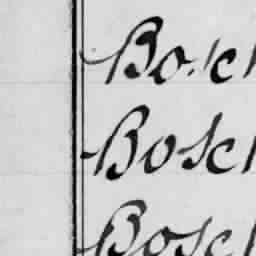 Bosch
Bosch
Bosch